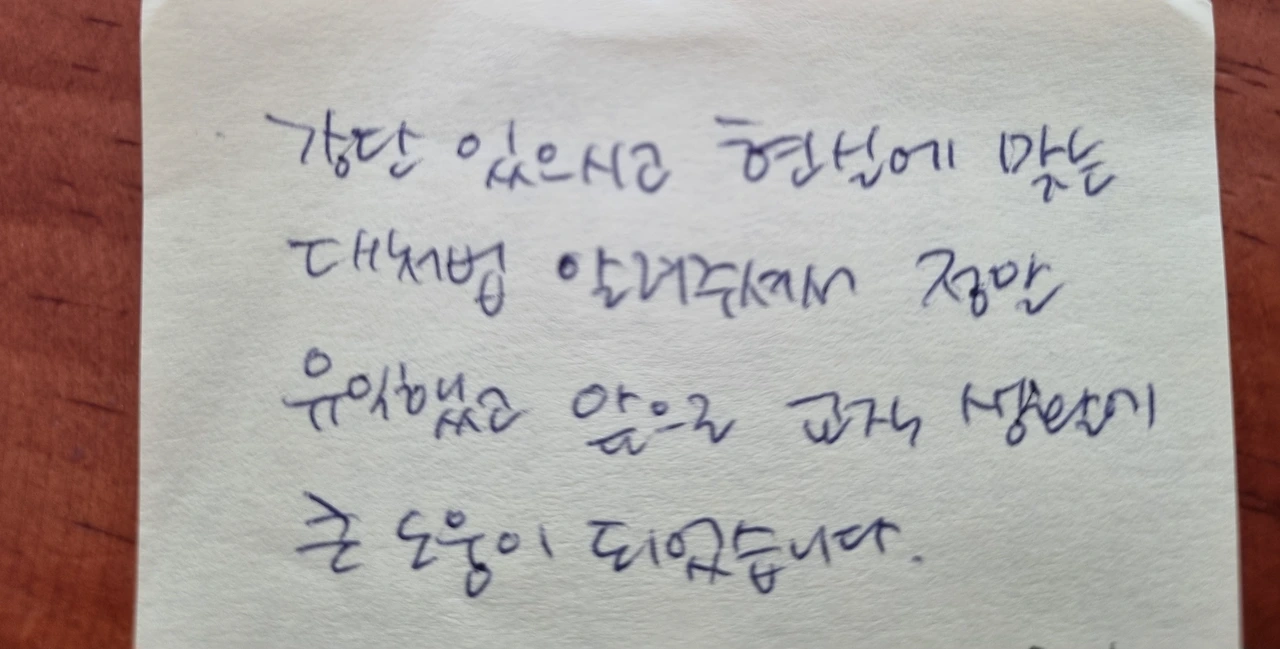 강단 있으시고 현실에 맞는
대처법 알려주셔서 정말
유익했고 앞으로 교직 생활에
큰 도움이 되었습니다.